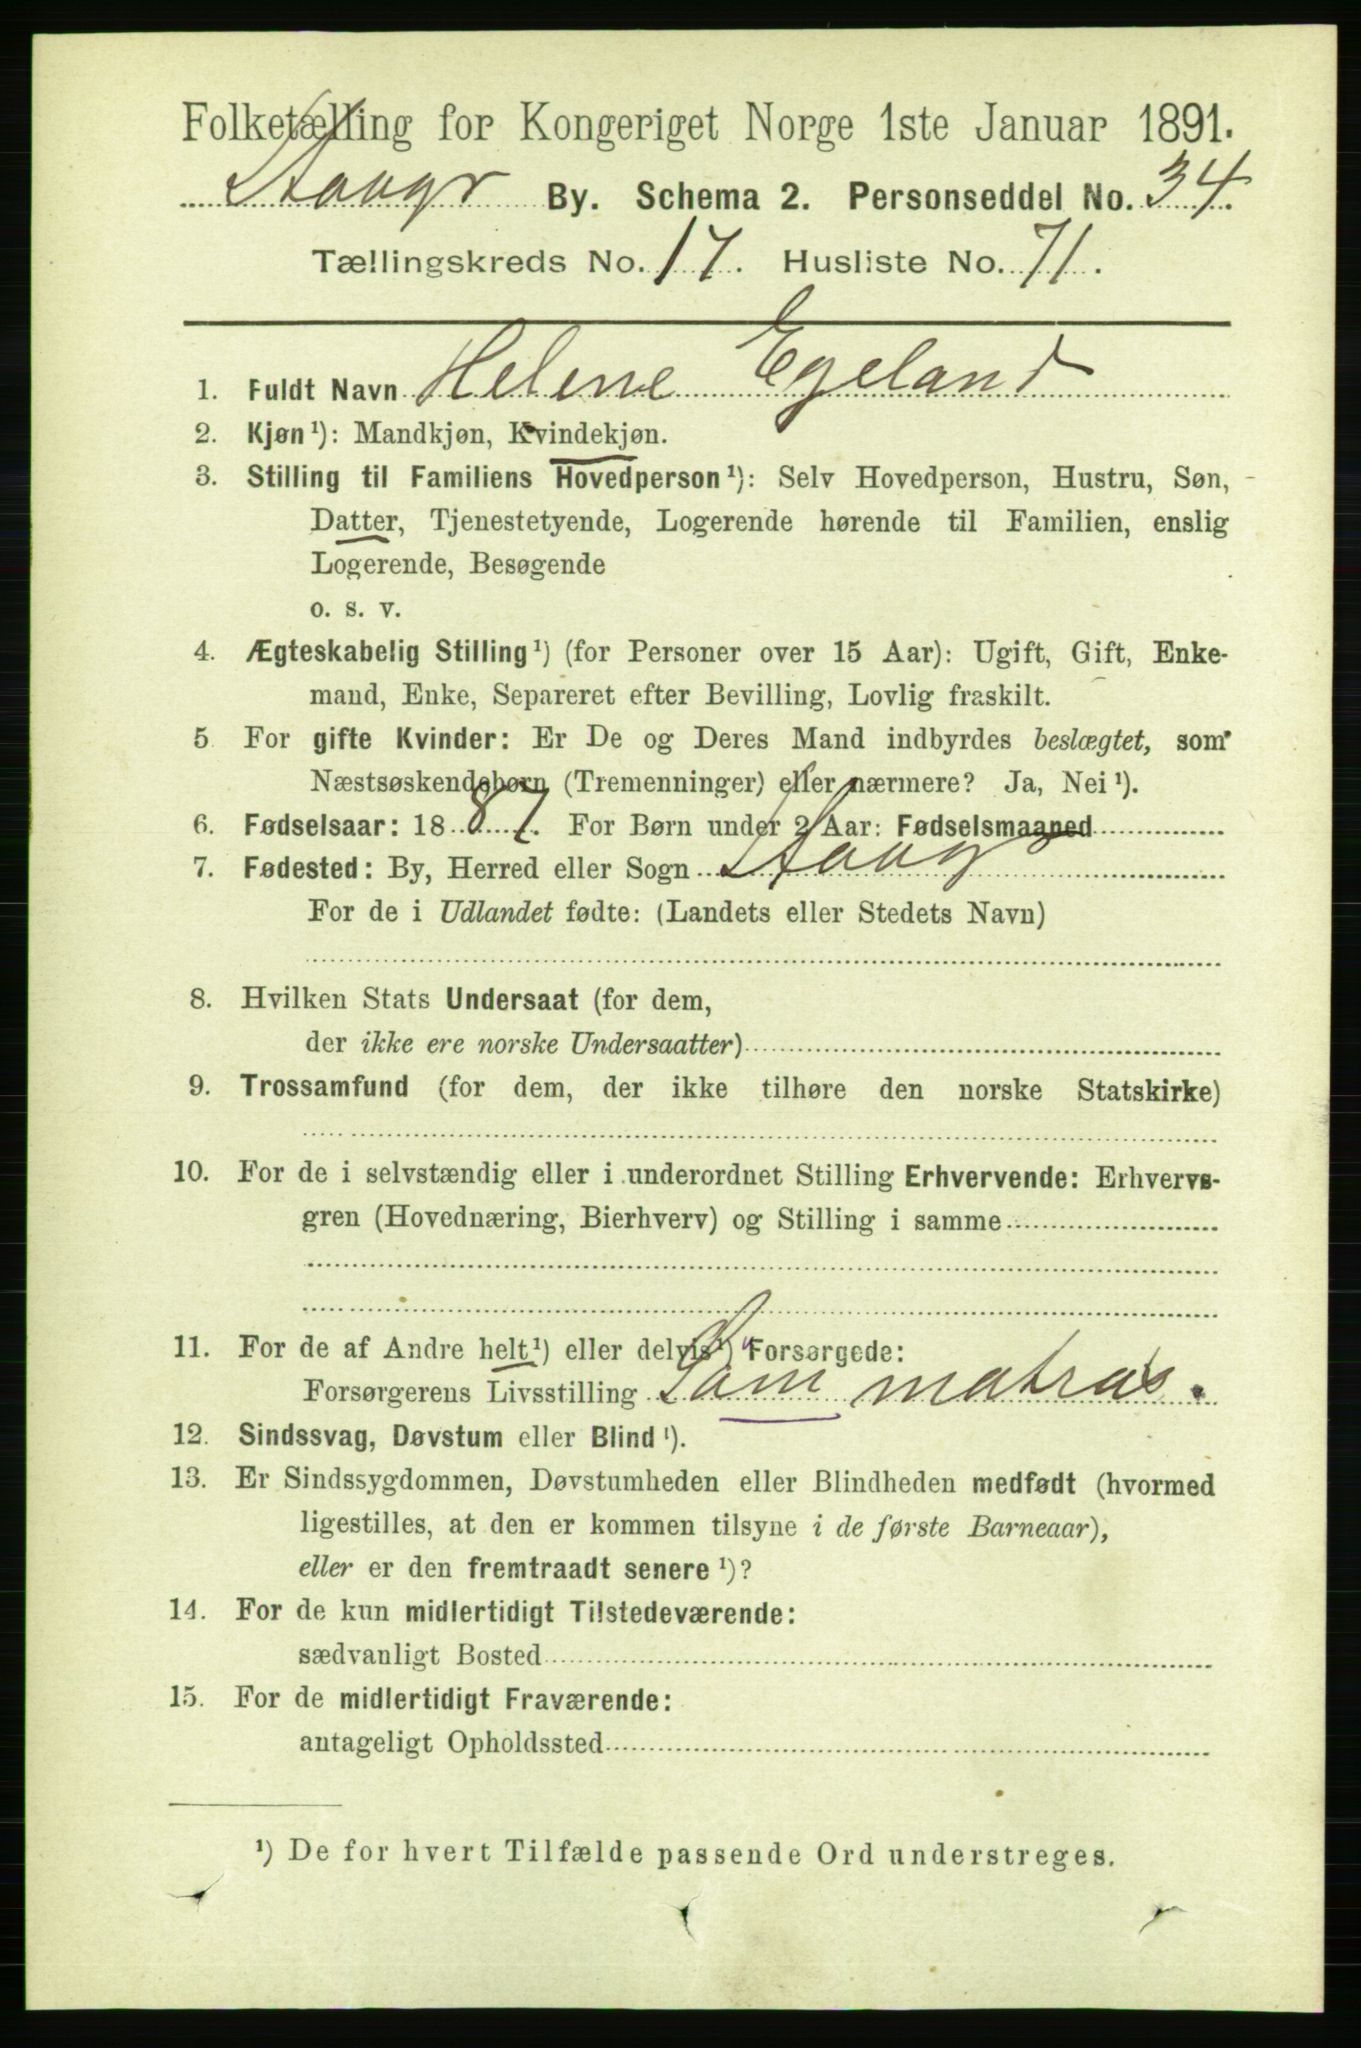 Folketælling for Kongeriget Norge 1ste Januar 1891.
Stavgr By. Schema 2. Personseddel No. 34.
Tællingskreds No. 17. Husliste No. 71.
1. Fuldt Navn Helene Egeland
2. Kjøn¹): Mandkjøn, Kvindekjøn.
3. Stilling til Familiens Hovedperson¹): Selv Hovedperson, Hustru, Søn,
Datter, Tjenestetyende, Logerende hørende til Familien, enslig
Logerende, Besøgende
o. s. v.
4. Ægteskabelig Stilling¹) (for Personer over 15 Aar): Ugift, Gift, Enke-
mand, Enke, Separeret efter Bevilling, Lovlig fraskilt.
5 For gifte Kvinder: Er De og Deres Mand indbyrdes beslægtet, som
Næstsøskendebørn (Tremenninger) eller nærmere? Ja, Nei¹).
6. Fødselsaar: 1887. For Børn under 2 Aar: Fødselsmaaned
7. Fødested: By, Herred eller Sogn Stavgr
For de i Udlandet fødte: (Landets eller Stedets Navn)
8. Hvilken Stats Undersaat (for dem,
der ikke ere norske Undersaatter)
9. Trossamfund (for dem, der ikke tilhøre den norske Statskirke)
10. For de i selvstændig eller i underordnet Stilling Erhvervende: Erhvervs-
gren (Hovednæring, Bierhverv) og Stilling i samme
11. For de af Andre helt¹) eller delvis¹) Forsørgede:
Forsørgerens Livsstilling Som matros.
12. Sindssvag, Døvstum eller Blind¹).
13. Er Sindssygdommen, Døvstumheden eller Blindheden medfødt (hvormed
ligestilles, at den er kommen tilsyne i de første Barneaar),
eller er den fremtraadt senere¹)?
14. For de kun midlertidigt Tilstedeværende:
sædvanligt Bosted
15. For de midlertidigt Fraværende:
antageligt Opholdssted
¹) De for hvert Tilfælde passende Ord understreges.